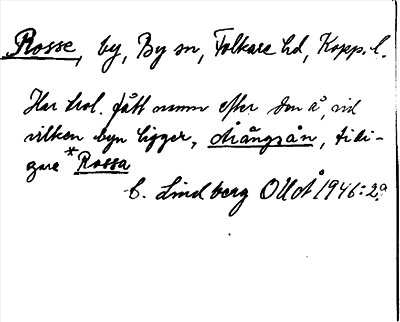 Rosse, by, By sn, Folkare hd, Kopp. l.
Har trol. fått namn efter den å, vid
vilken byn ligger, Årängsån, tidi-
gare *Rossa
C. Lindberg OUoÅ 1946: 29